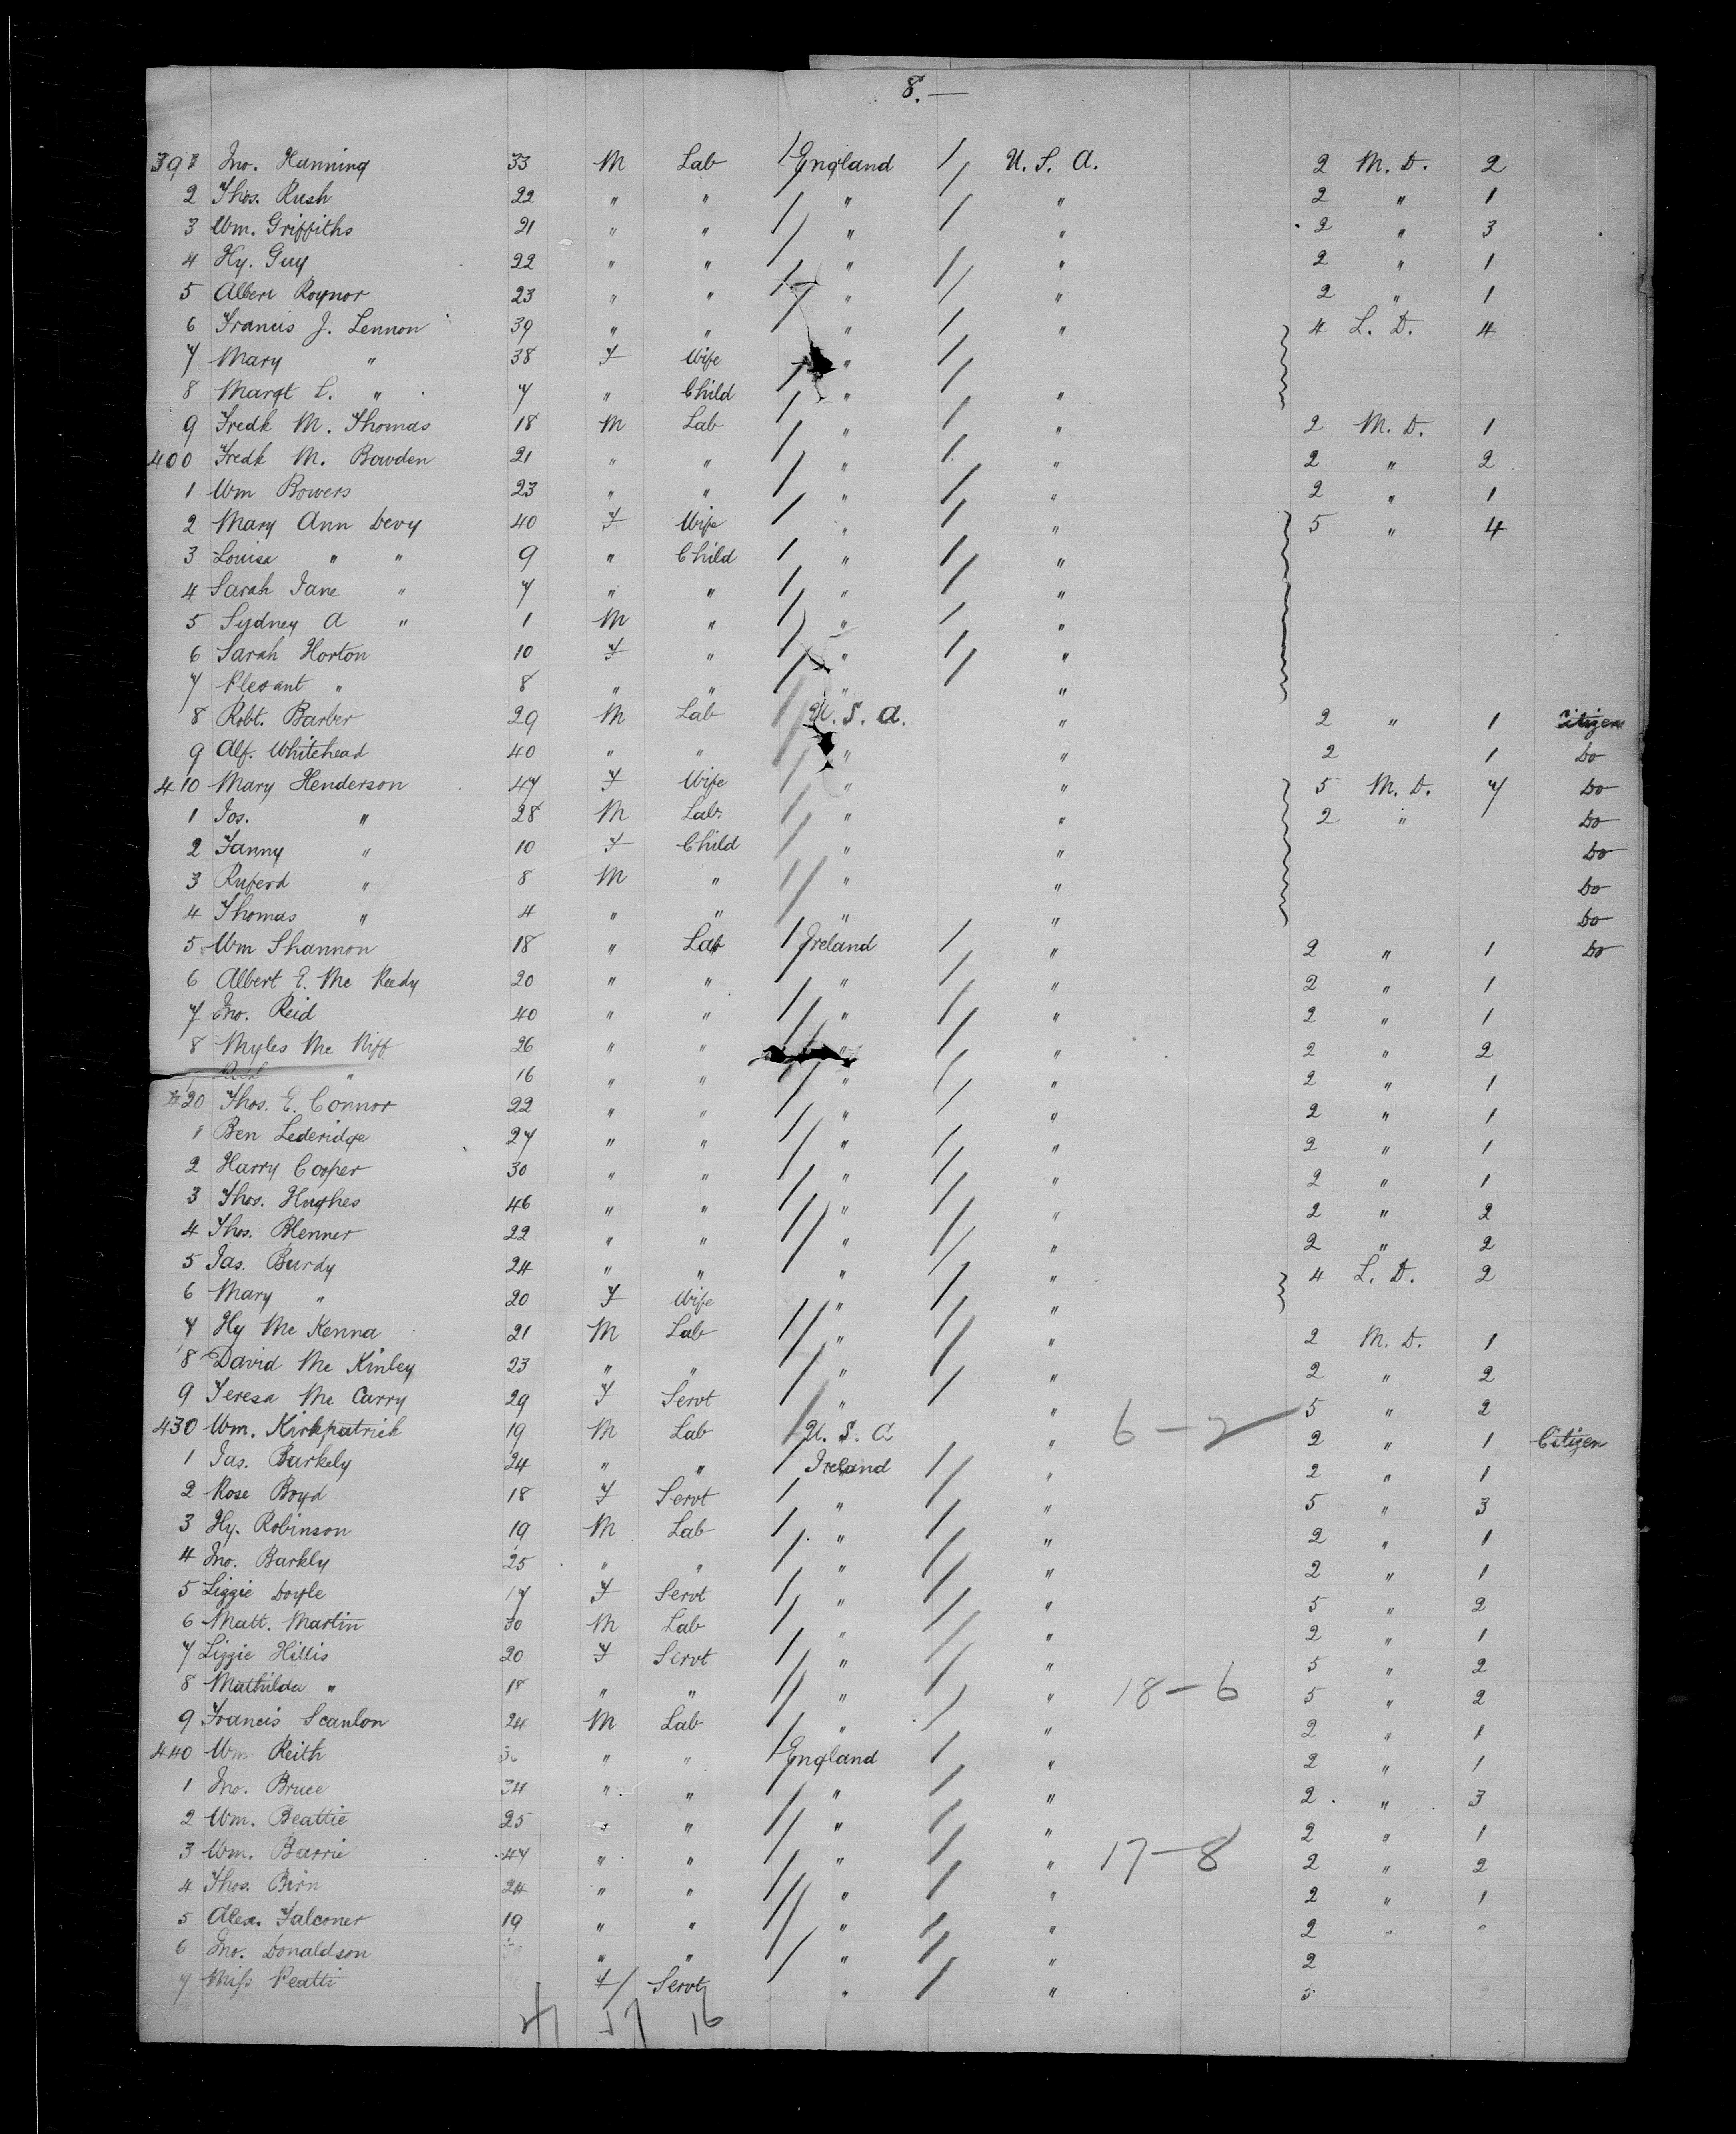 8.—
391 Jno. Hanning 33 M Lab England U. S. A. 2 M. D. 2
2 Thos. Rush 22 " " " " 2 " 1
3 Wm. Griffiths 21 " " " " 2 " 3
4 Hy. Guy 22 " " " " 2 " 1
5 Albert Roynor 23 " " " " 2 " 1
6 Francis J. Lennon 39 " " " " 4 L. D. 4
7 Mary " 38 F Wife "
8 Margt L. " 7 " Child " "
9 Fredk M. Thomas 18 M Lab " " 2 M. D. 1
400 Fredk M. Bowden 21 " " " " 2 " 2
1 Wm Bowers 23 " " " " 2 " 1
2 Mary Ann Devy 40 F Wife " " 5 " 4
3 Louisa " " 9 " Child " "
4 Sarah Jane " 7 " " " "
5 Sydney A " 1 M " " "
6 Sarah Horton 10 F " " "
7 Plesant " 8 " " " "
8 Robt. Barber 29 M Lab U. S. A. " 2 " 1 Citizen
9 Alf. Whitehead 40 " " " " 2 1 Do
410 Mary Henderson 47 F Wife " " 5 M. D. 7 Do
1 Jos. " 28 M Lab. " " 2 " Do
2 Fanny " 10 F Child " " Do
3 Ruferd " 8 M " " " Do
4 Thomas " 4 " " " " Do
5 Wm Shannon 18 " Lab Ireland " 2 " 1 Do
6 Albert E. Mc Reedy 20 " " " " 2 " 1
7 Jno. Reid 40 " " " " 2 " 1
8 Myles Mc Niff 26 " " " " 2 " 2
" 16 " " " " 2 " 1
420 Thos. E. Connor 22 " " " " 2 " 1
1 Ben Lederidge 27 " " " " 2 " 1
2 Harry Cooper 30 " " " " 2 " 1
3 Thos. Hughes 46 " " " " 2 " 2
4 Thos. Blenner 22 " " " " 2 " 2
5 Jas. Burdy 24 " " " " 4 L. D. 2
6 Mary " 20 F Wife " "
7 Hy Mc Kenna 21 M Lab " " 2 M. D. 1
8 David Mc Kinley 23 " " " " 2 " 2
9 Teresa Mc Carry 29 F Servt " " 5 " 2
430 Wm. Kirkpatrick 19 M Lab U. S. A " 6—2 2 " 1 Citizen
1 Jas. Barkely 24 " " Ireland " 2 " 1
2 Rose Boyd 18 F Servt " " 5 " 3
3 Hy. Robinson 19 M Lab " " 2 " 1
4 Jno. Barkly 25 " " " " 2 " 1
5 Lizzie Doyle 17 F Servt " " 5 " 2
6 Matt. Martin 30 M Lab " " 2 " 1
7 Lizzie Hillis 20 F Servt " " 5 " 2
8 Mathilda " 18 " " " " 18—6 5 " 2
9 Francis Scanlon 24 M Lab " " 2 " 1
440 Wm Reith " " England " 2 " 1
1 Jno. Bruce 34 " " " " 2 " 3
2 Wm. Beattie 25 " " " " 2 " 1
3 Wm. Barrie 47 " " " " 17—8 2 " 2
4 Thos. Birn 24 " " " " 2 " 1
5 Alex. Falconer 19 " " " " 2 " "
6 Jno. Donaldson " " " " 2
7 Miss Peatti F Servt " " 5
57 16